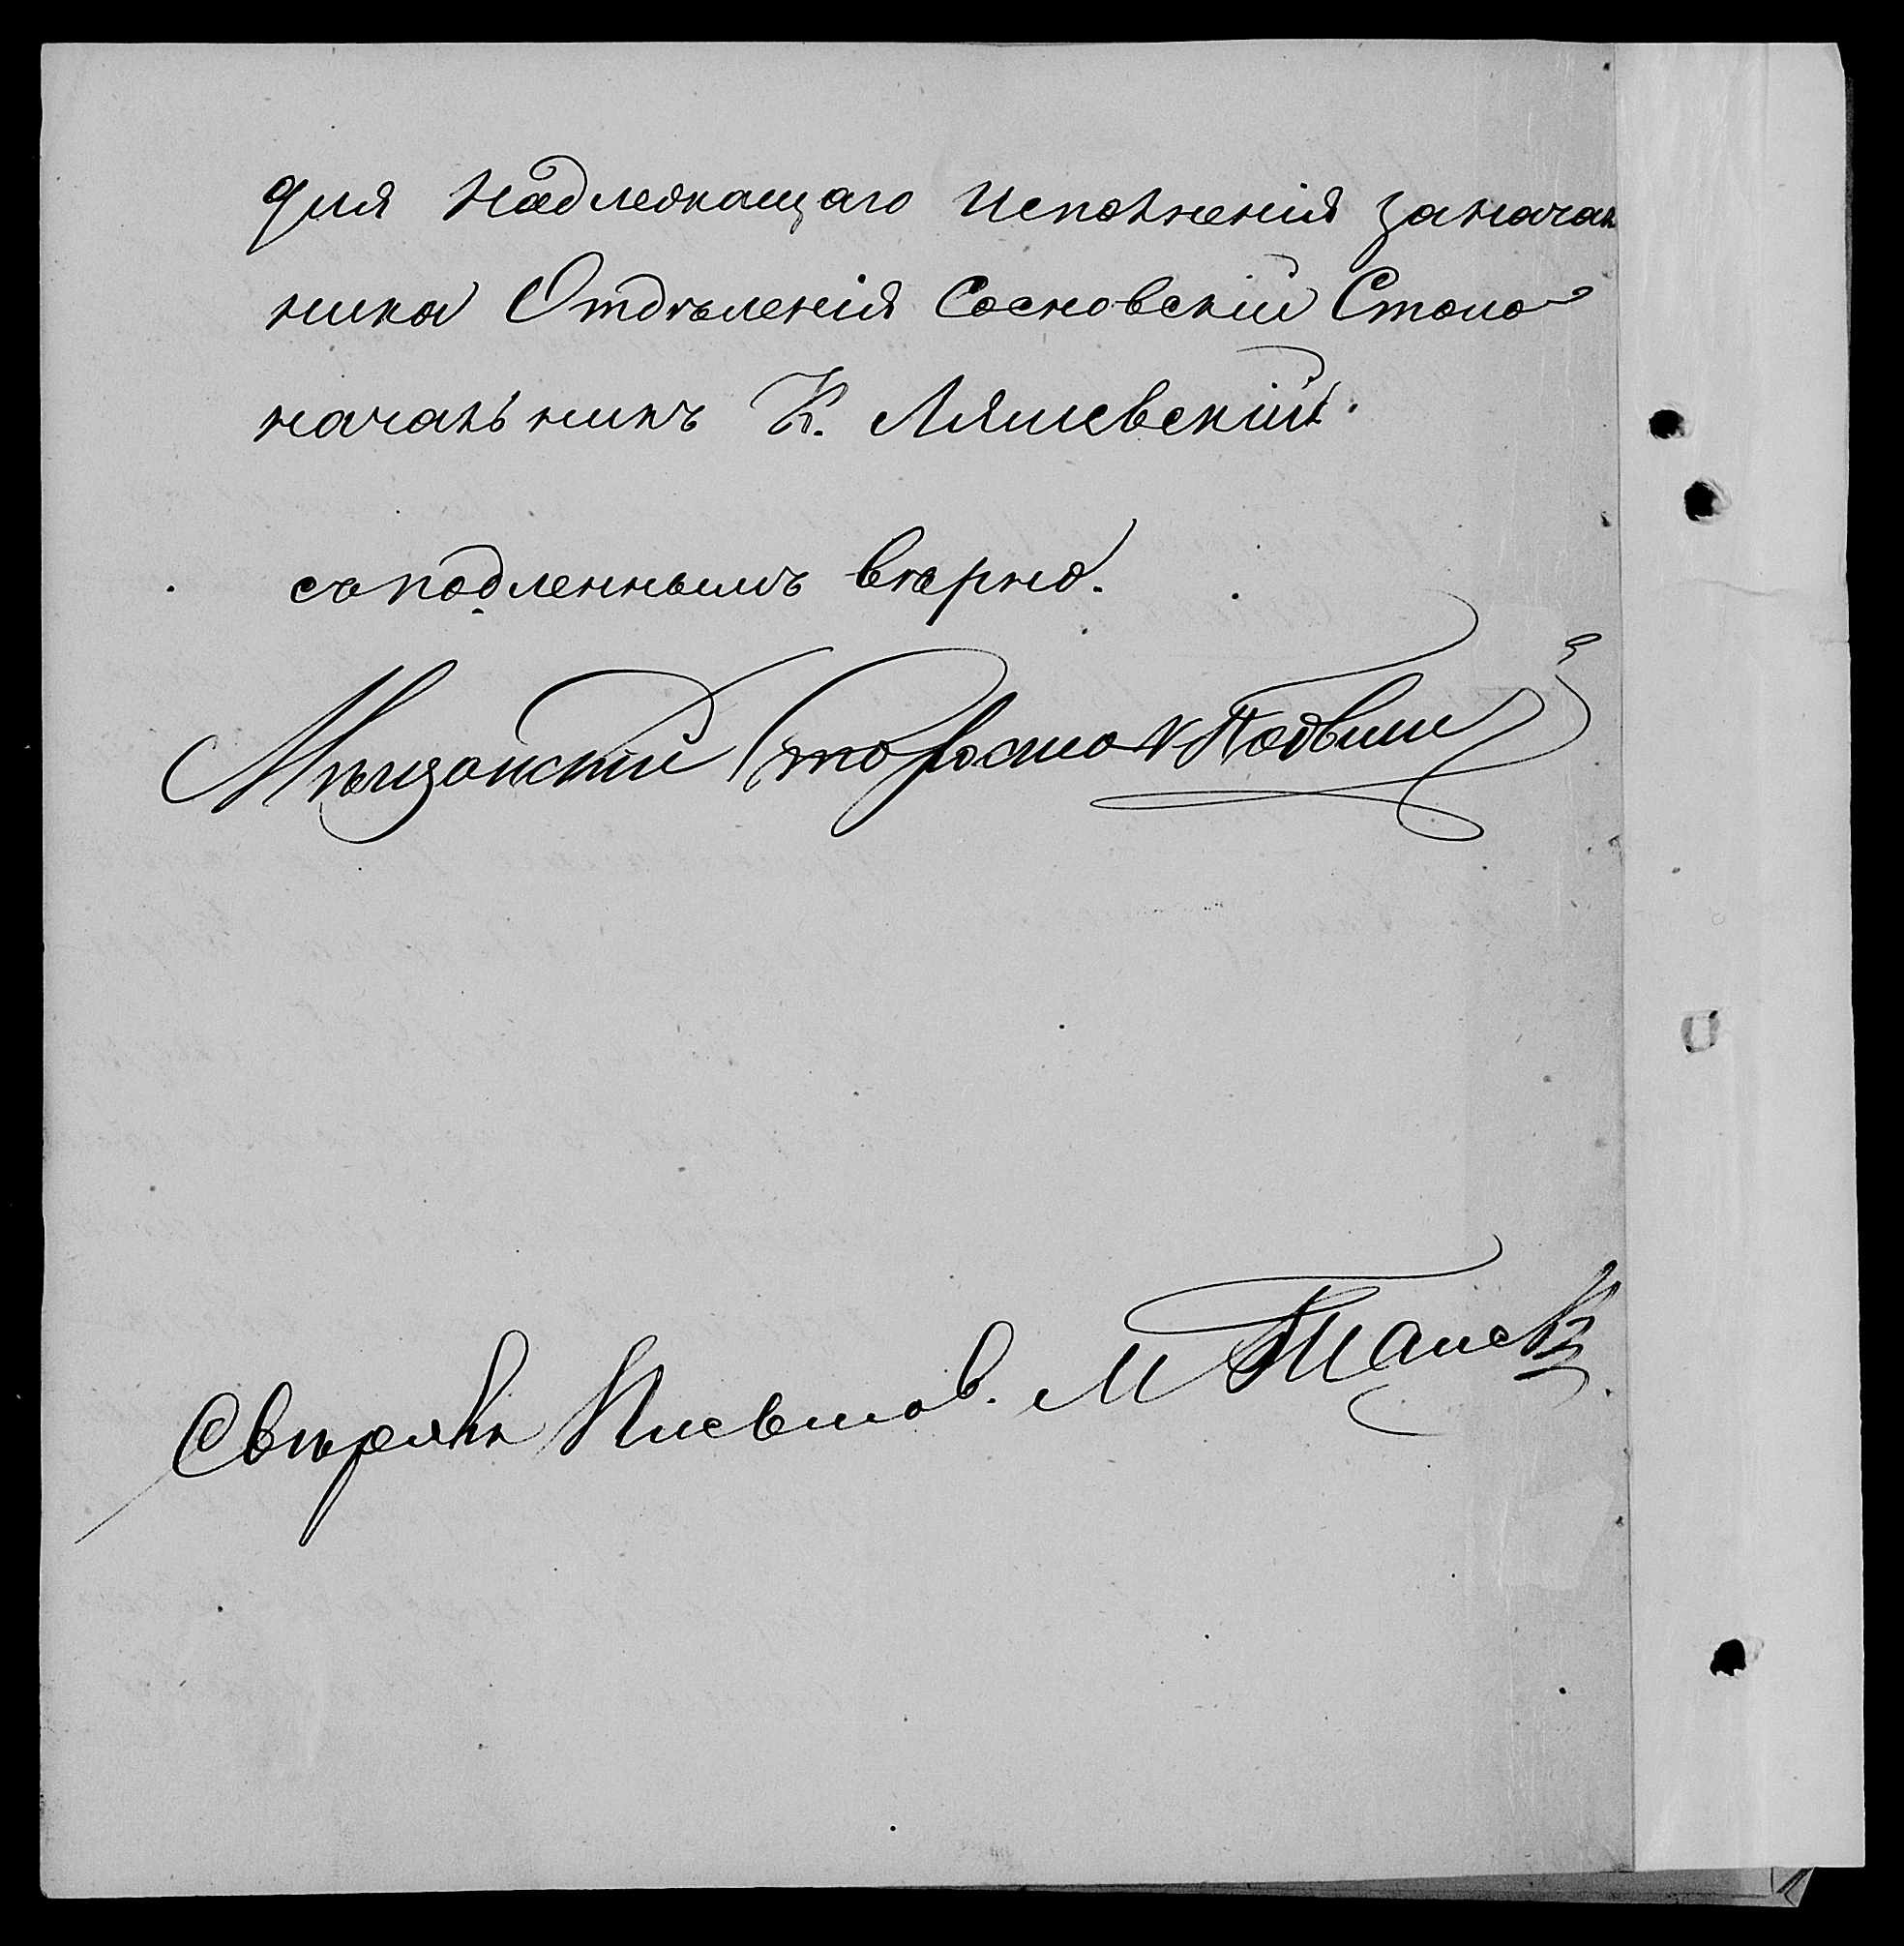 для надлежащаго исполненія за начал
ника Отдѣленія Сосновскій Столо
начальникъ К. Ляшевскій.
съ подленнымъ вѣрно.
Мѣщанскій Староста
Свѣрялъ Письмов. М